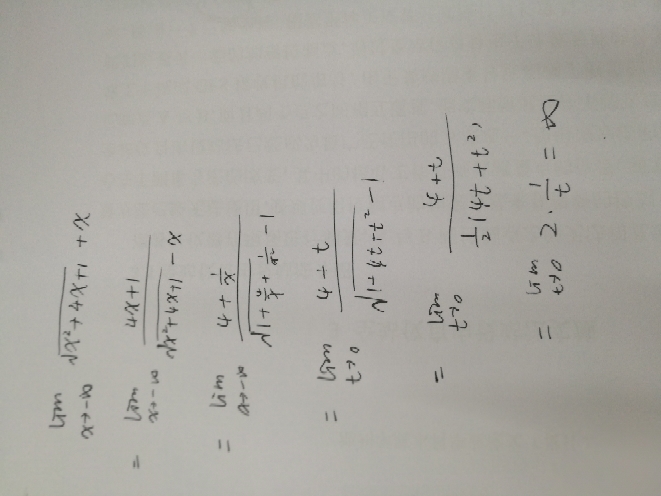 lim x→-∞ √(x²+4x+1) + x
= lim x→-∞ (4x+1)/(√(x²+4x+1) - x)
= lim x→-∞ (4+1/x)/(√(1+4/x+1/x²) - 1)
= lim t→0 (4+t)/(√(1+4t+t²) - 1)
= lim t→0 (4+t)/(1/2(4t+t²))
= lim t→0 2·1/t = ∞